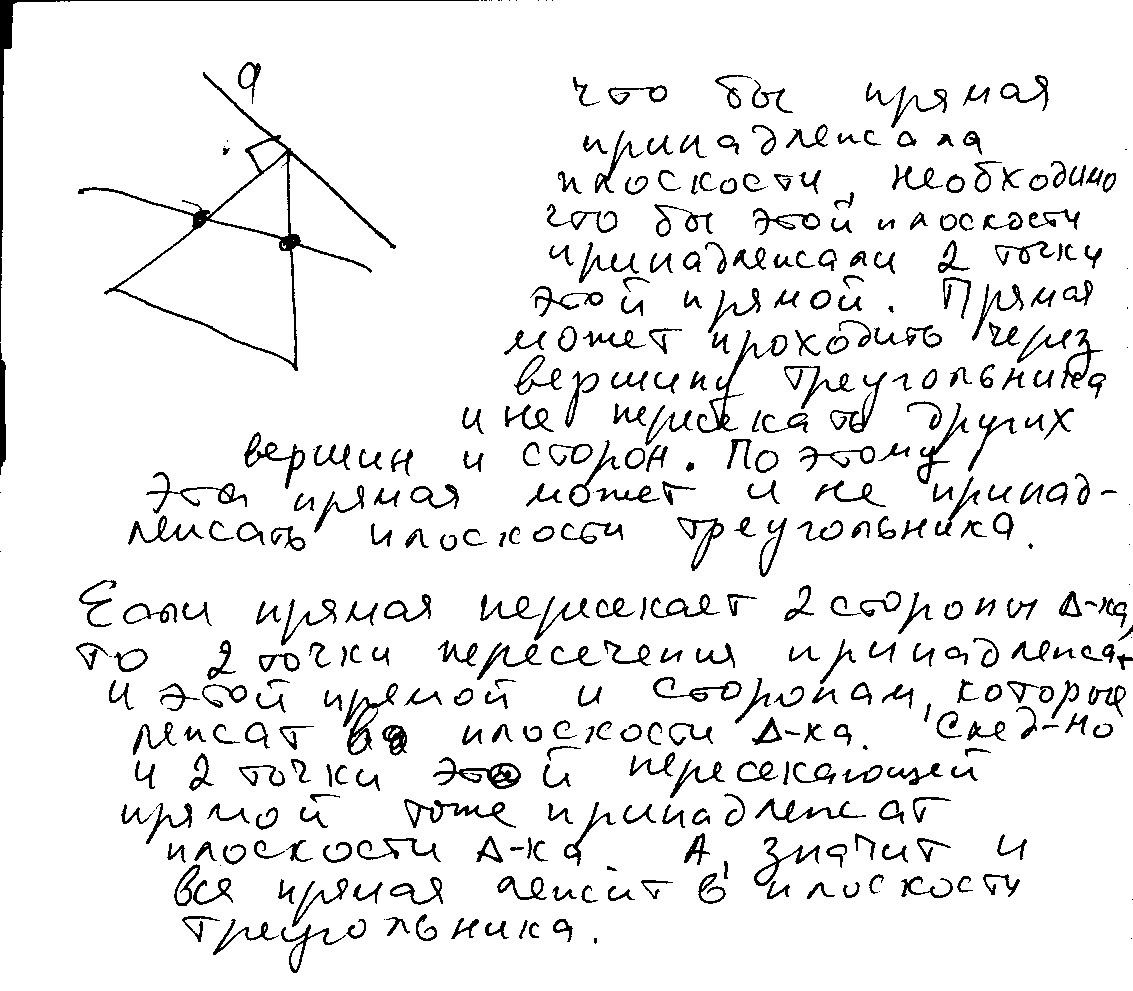 a
что бы прямая
принадлежала
плоскости, необходимо
что бы этой плоскости
принадлежали 2 точки
этой прямой. Прямая
может проходить через
вершину треугольника
и не пересекать других
вершин и сторон. По этому
эта прямая может и не принад-
лежать плоскости треугольника.
Если прямая пересекает 2 стороны Δ-ка,
то 2 точки пересечения принадлежат
и этой прямой и сторонам, которые
лежат в плоскости Δ-ка. След-но
и 2 точки этой пересекающей
прямой тоже принадлежат
плоскости Δ-ка. А, значит и
вся прямая лежит в плоскости
треугольника.